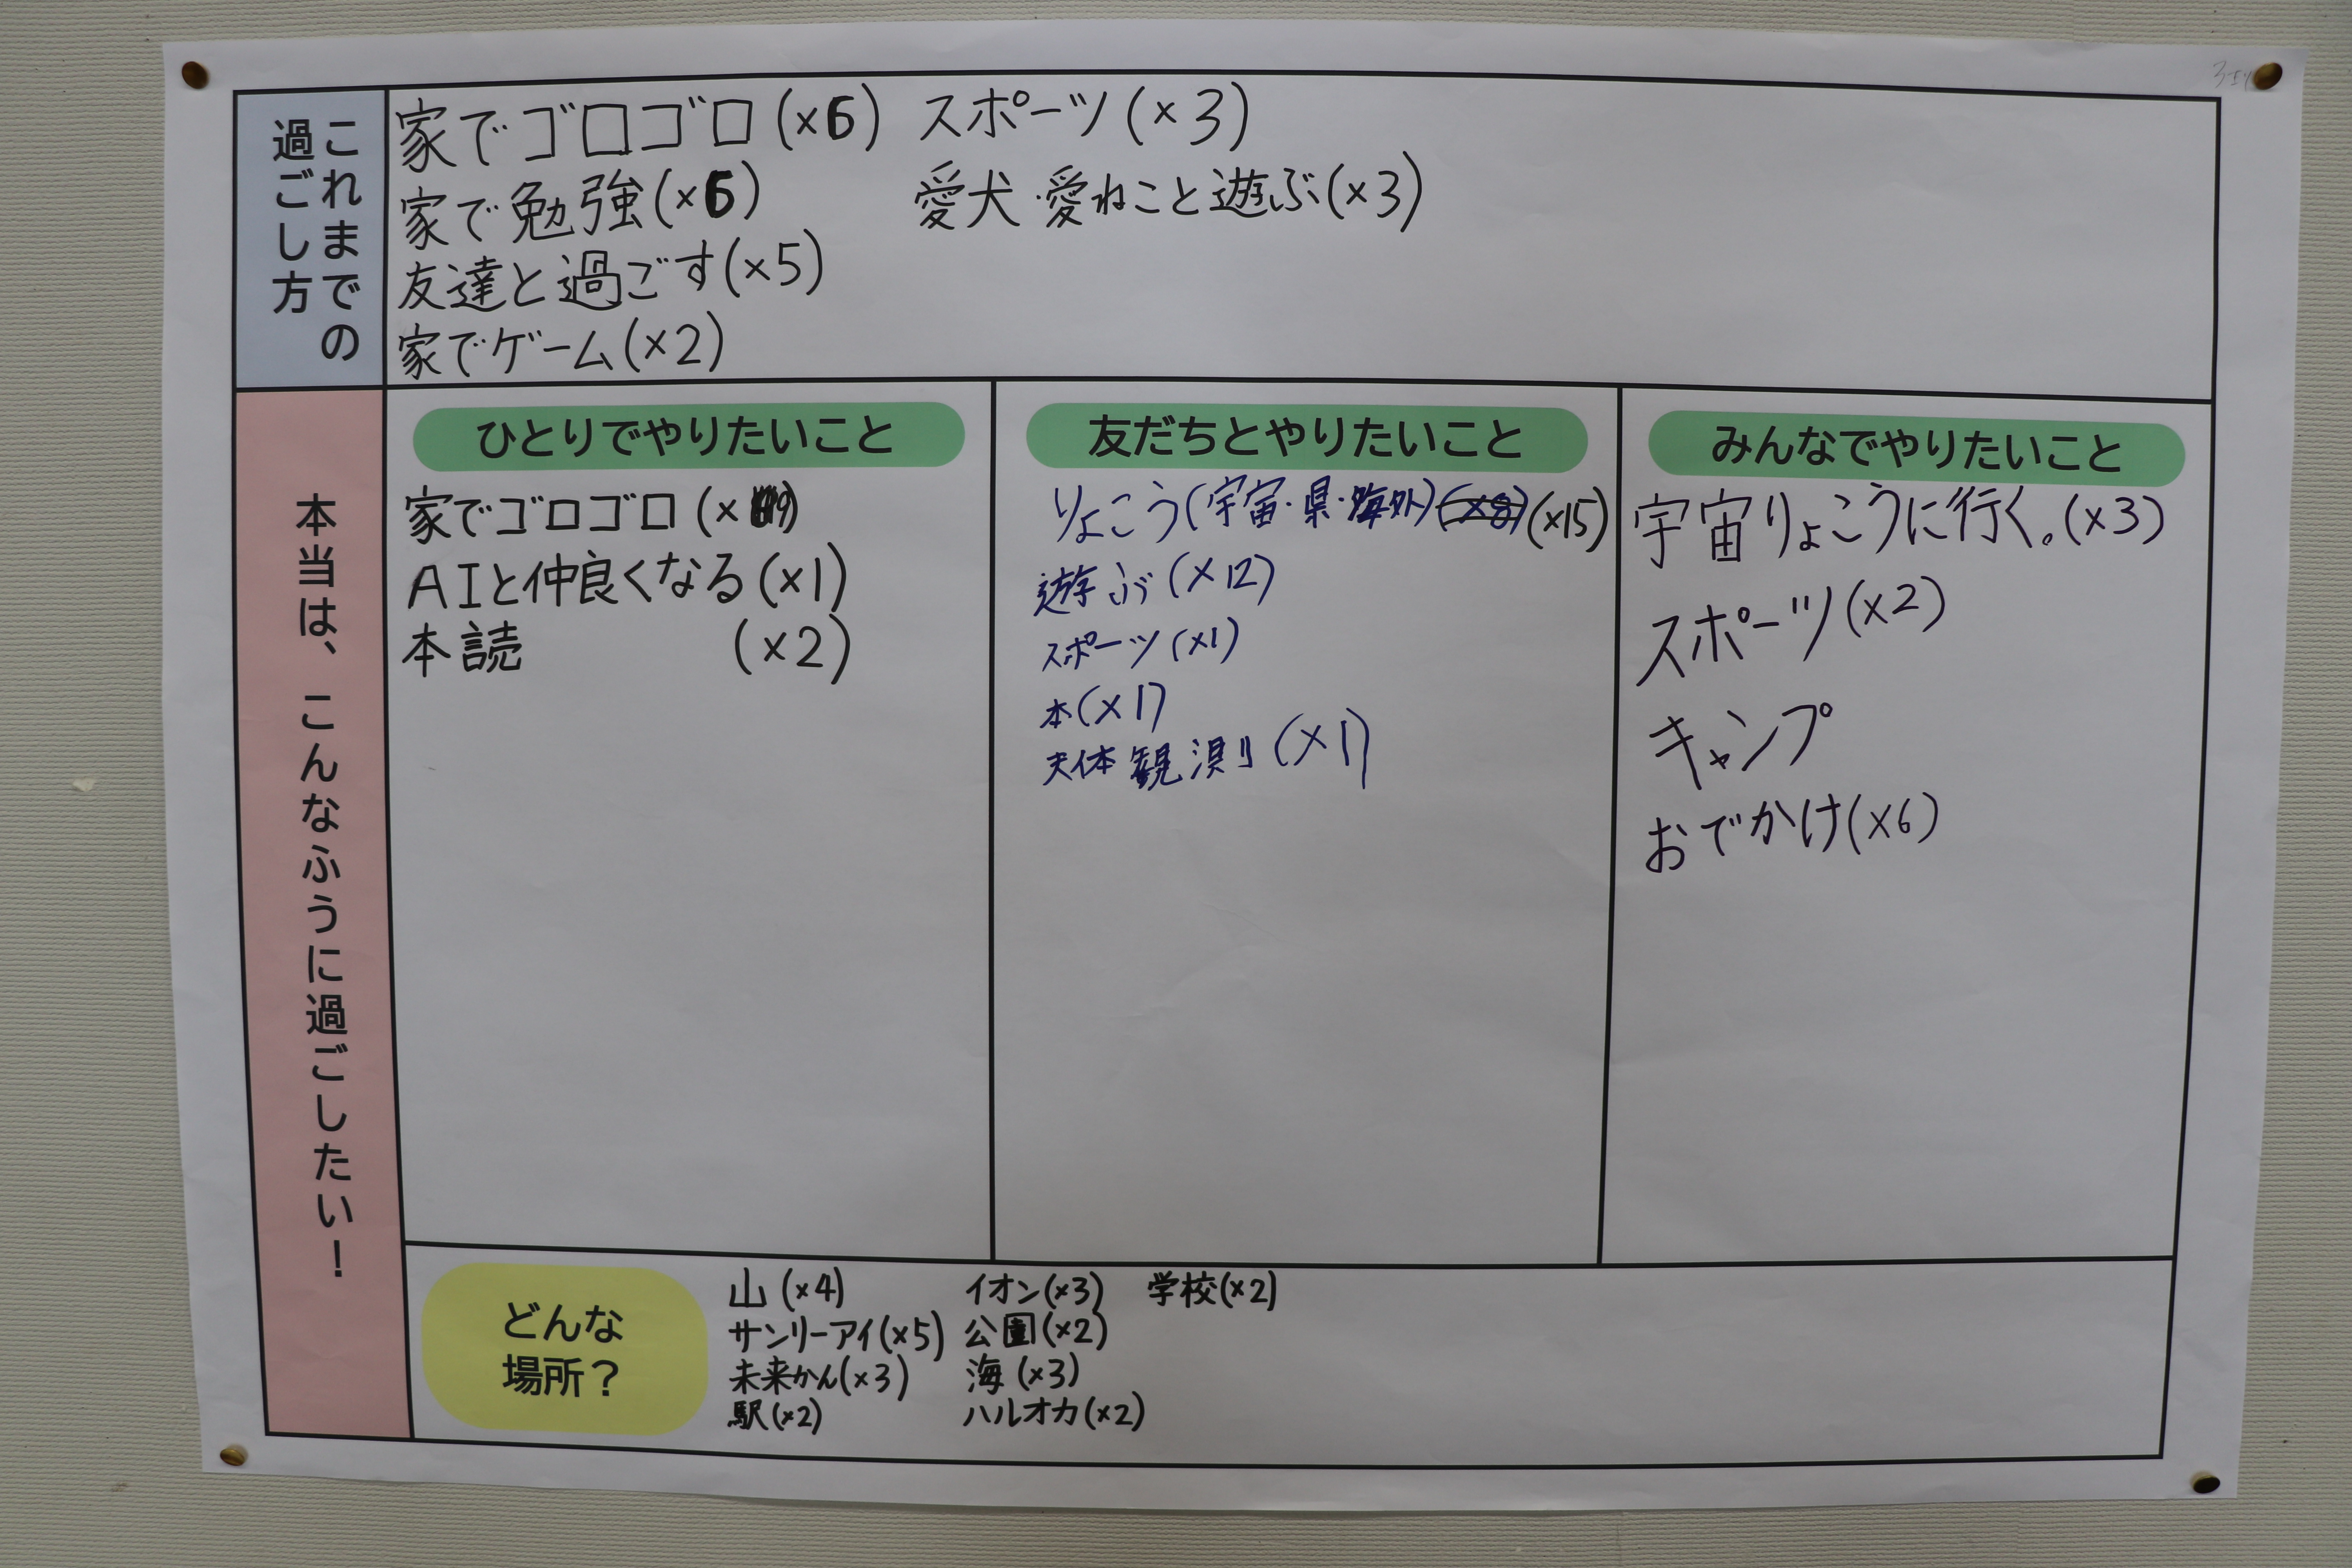 これまでの
過ごし方
家でゴロゴロ(×6) スポーツ(×3)
家で勉強(×6) 愛犬・愛ねこと遊ぶ(×3)
友達と過ごす(×5)
家でゲーム(×2)
本当は、こんなふうに過ごしたい!
ひとりでやりたいこと
家でゴロゴロ
AIと仲良くなる(×1)
本読 (×2)
友だちとやりたいこと
りょこう(宇宙・県・海外)(×8)(×15)
遊ぶ(×12)
スポーツ(×1)
本(×1)
天体観測(×1)
みんなでやりたいこと
宇宙りょこうに行く。(×3)
スポーツ(×2)
キャンプ
おでかけ(×6)
どんな
場所?
山(×4) イオン(×3) 学校(×2)
サンリーアイ(×5) 公園(×2)
未来かん(×3) 海(×3)
駅(×2) ハルオカ(×2)